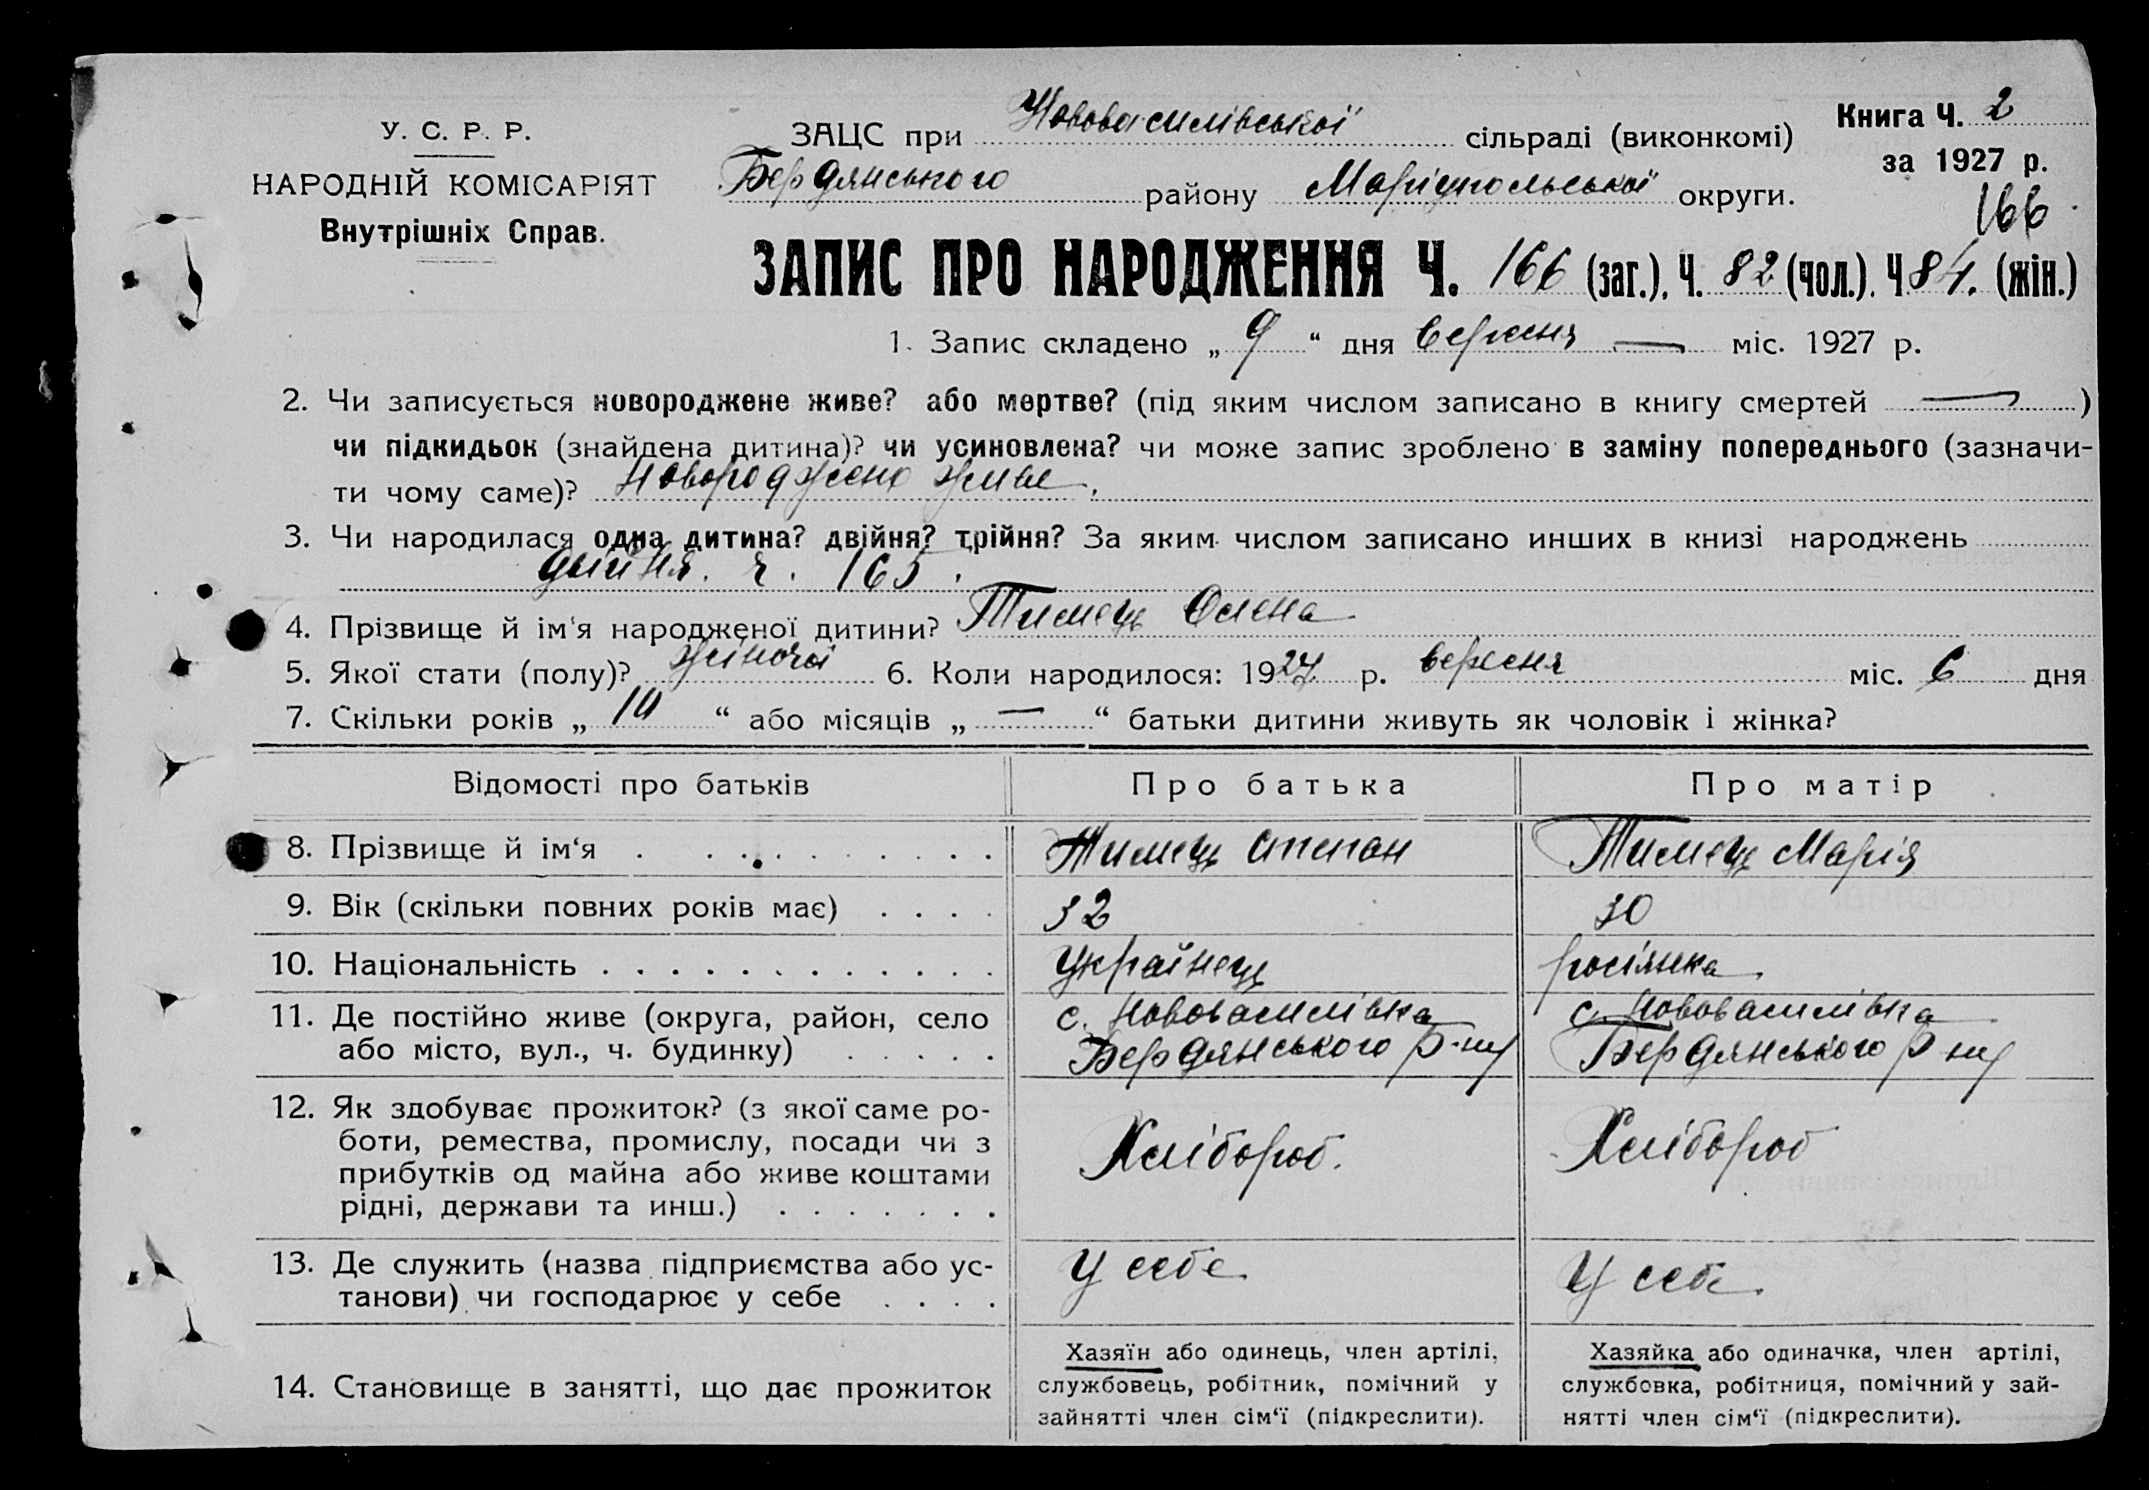 У. С. Р. Р.
НАРОДНІЙ КОМІСАРІЯТ
Внутрішніх Справ.
ЗАЦС при Нововасилівської сільраді (виконкомі)
Бердянського району Маріупольської округи.
Книга Ч. 2
за 1927 р.
166
ЗАПИС ПРО НАРОДЖЕННЯ Ч. 166 (заг.), Ч. 82 (чол.), Ч 84. (жін.)
1. Запис складено „ 9 “ дня вересня — міс. 1927 р.
2. Чи записується новороджене живе? або мертве? (під яким числом записано в книгу смертей — )
чи підкидьок (знайдена дитина)? чи усиновлена? чи може запис зроблено в заміну попереднього (зазначи-
ти чому саме)? Новороджене живе.
3. Чи народилася одна дитина? двійня? трійня? За яким числом записано инших в книзі народжень
двійня. ч. 165.
4. Прізвище й ім'я народженої дитини? Тимець Олена
5. Якої стати (полу)? жіночої 6. Коли народилося: 1927 р. вересня міс. 6 дня
7. Скільки років „ 10 “ або місяців „ — “ батьки дитини живуть як чоловік і жінка?
Відомості про батьків Про батька Про матір
8. Прізвище й ім‘я Тимець Степан Тимець Марія
9. Вік (скільки повних років має) 32 30
10. Національність Українець росіянка
11. Де постійно живе (округа, район, село
або місто, вул., ч. будинку)
с. Нововасилівка
Бердянського р-ну
с. Нововасилівка
Бердянського р-ну
12. Як здобуває прожиток? (з якої саме ро-
боти, ремества, промислу, посади чи з
прибутків од майна або живе коштами
рідні, держави та инш.)
Хлібороб.
Хлібороб
13. Де служить (назва підприємства або ус-
танови) чи господарює у себе
У себе
У себе
14. Становище в занятті, що дає прожиток
Хазяїн або одинець, член артілі,
службовець, робітник, помічний у
зайнятті член сім‘ї (підкреслити).
Хазяйка або одиначка, член артілі,
службовка, робітниця, помічний у зай-
нятті член сім‘ї (підкреслити).